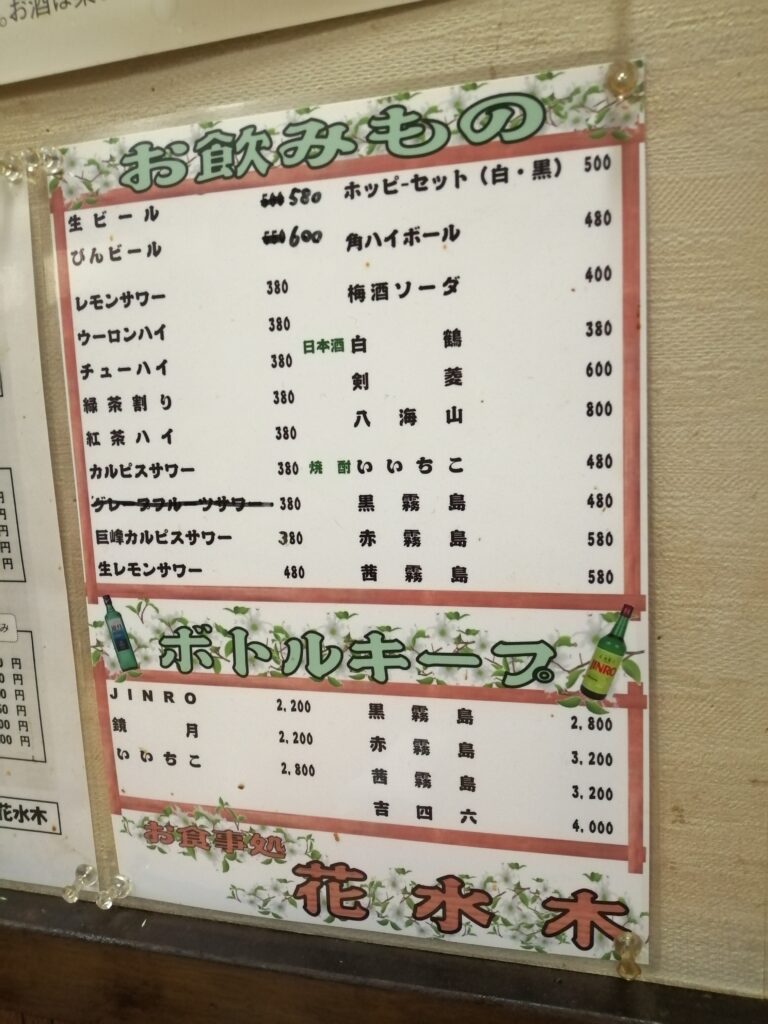 。お酒は
お飲みもの
生ビール 580
びんビール 600
レモンサワー 380
ウーロンハイ 380
チューハイ 380
緑茶割り 380
紅茶ハイ 380
カルピスサワー 380
グレープフルーツサワー 380
巨峰カルピスサワー 380
生レモンサワー 480
ホッピーセット（白・黒） 500
角ハイボール 480
梅酒ソーダ 400
日本酒 白鶴 380
剣菱 600
八海山 800
焼酎 いいちこ 480
黒霧島 480
赤霧島 580
茜霧島 580
ボトルキープ
JINRO
JINRO 2,200
鏡月 2,200
いいちこ 2,800
黒霧島 2,800
赤霧島 3,200
茜霧島 3,200
吉四六 4,000
お食事処
花水木
円
円
円
円
円
み
0 円
0 円
0 円
50 円
00 円
00 円
花水木